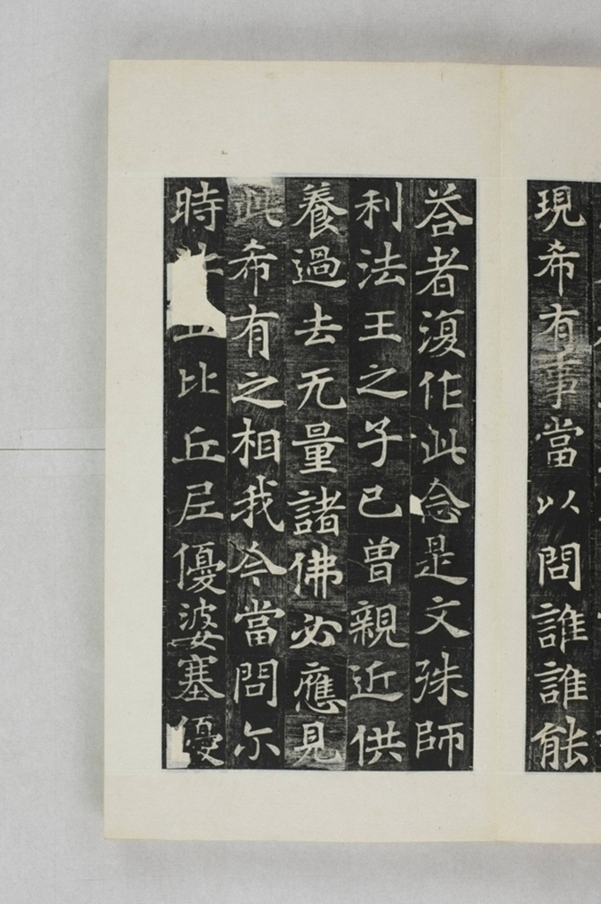 現希有事當以問誰誰能
荅者復作此念是文殊師
利法王之子已曾親近供
養過去无量諸佛必應見
此希有之相我今當問尒
時比丘尼優婆塞優